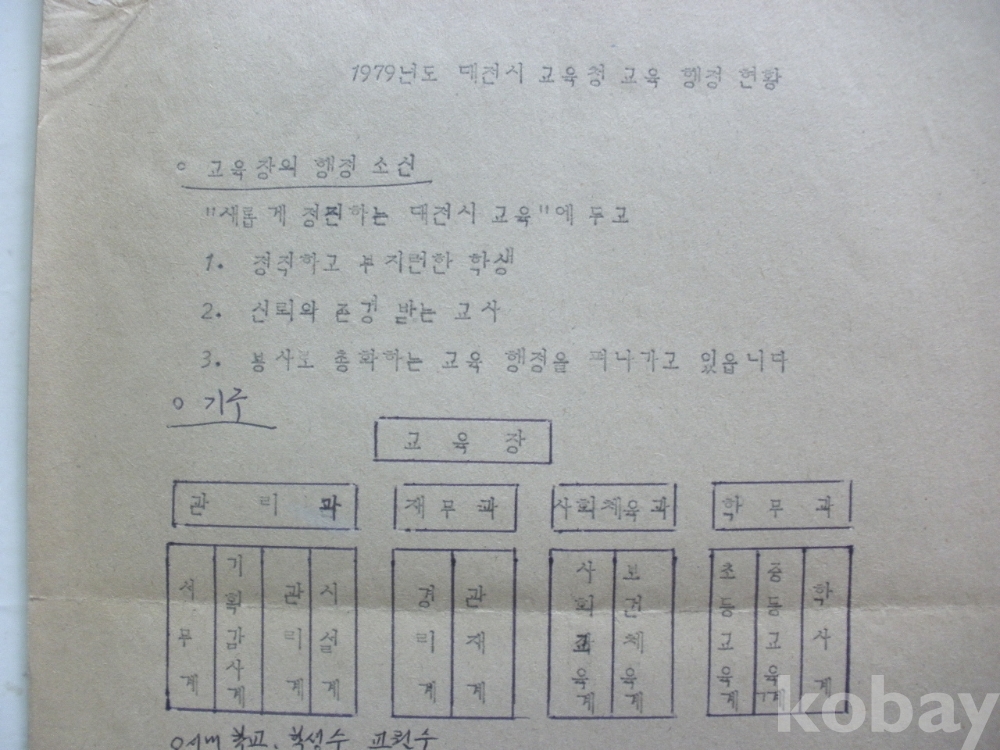 1979년도 대전시 교육청 교육 행정 현황
o 교육장의 행정 소신
"새롭게 정진하는 대전시 교육"에 두고
1. 정직하고 부지런한 학생
2. 신뢰와 존경 받는 교사
3. 봉사로 총화하는 교육 행정을 펴나가고 있읍니다
o 기구
교육장
관리과 재무과 사회체육과 학무과
서무계 기획감사계 관리계 시설계 경리계 관재계 사회교육계 보건체육계 초등교육계 중등교육계 학사계
학교, 학생수 교원수
kobay